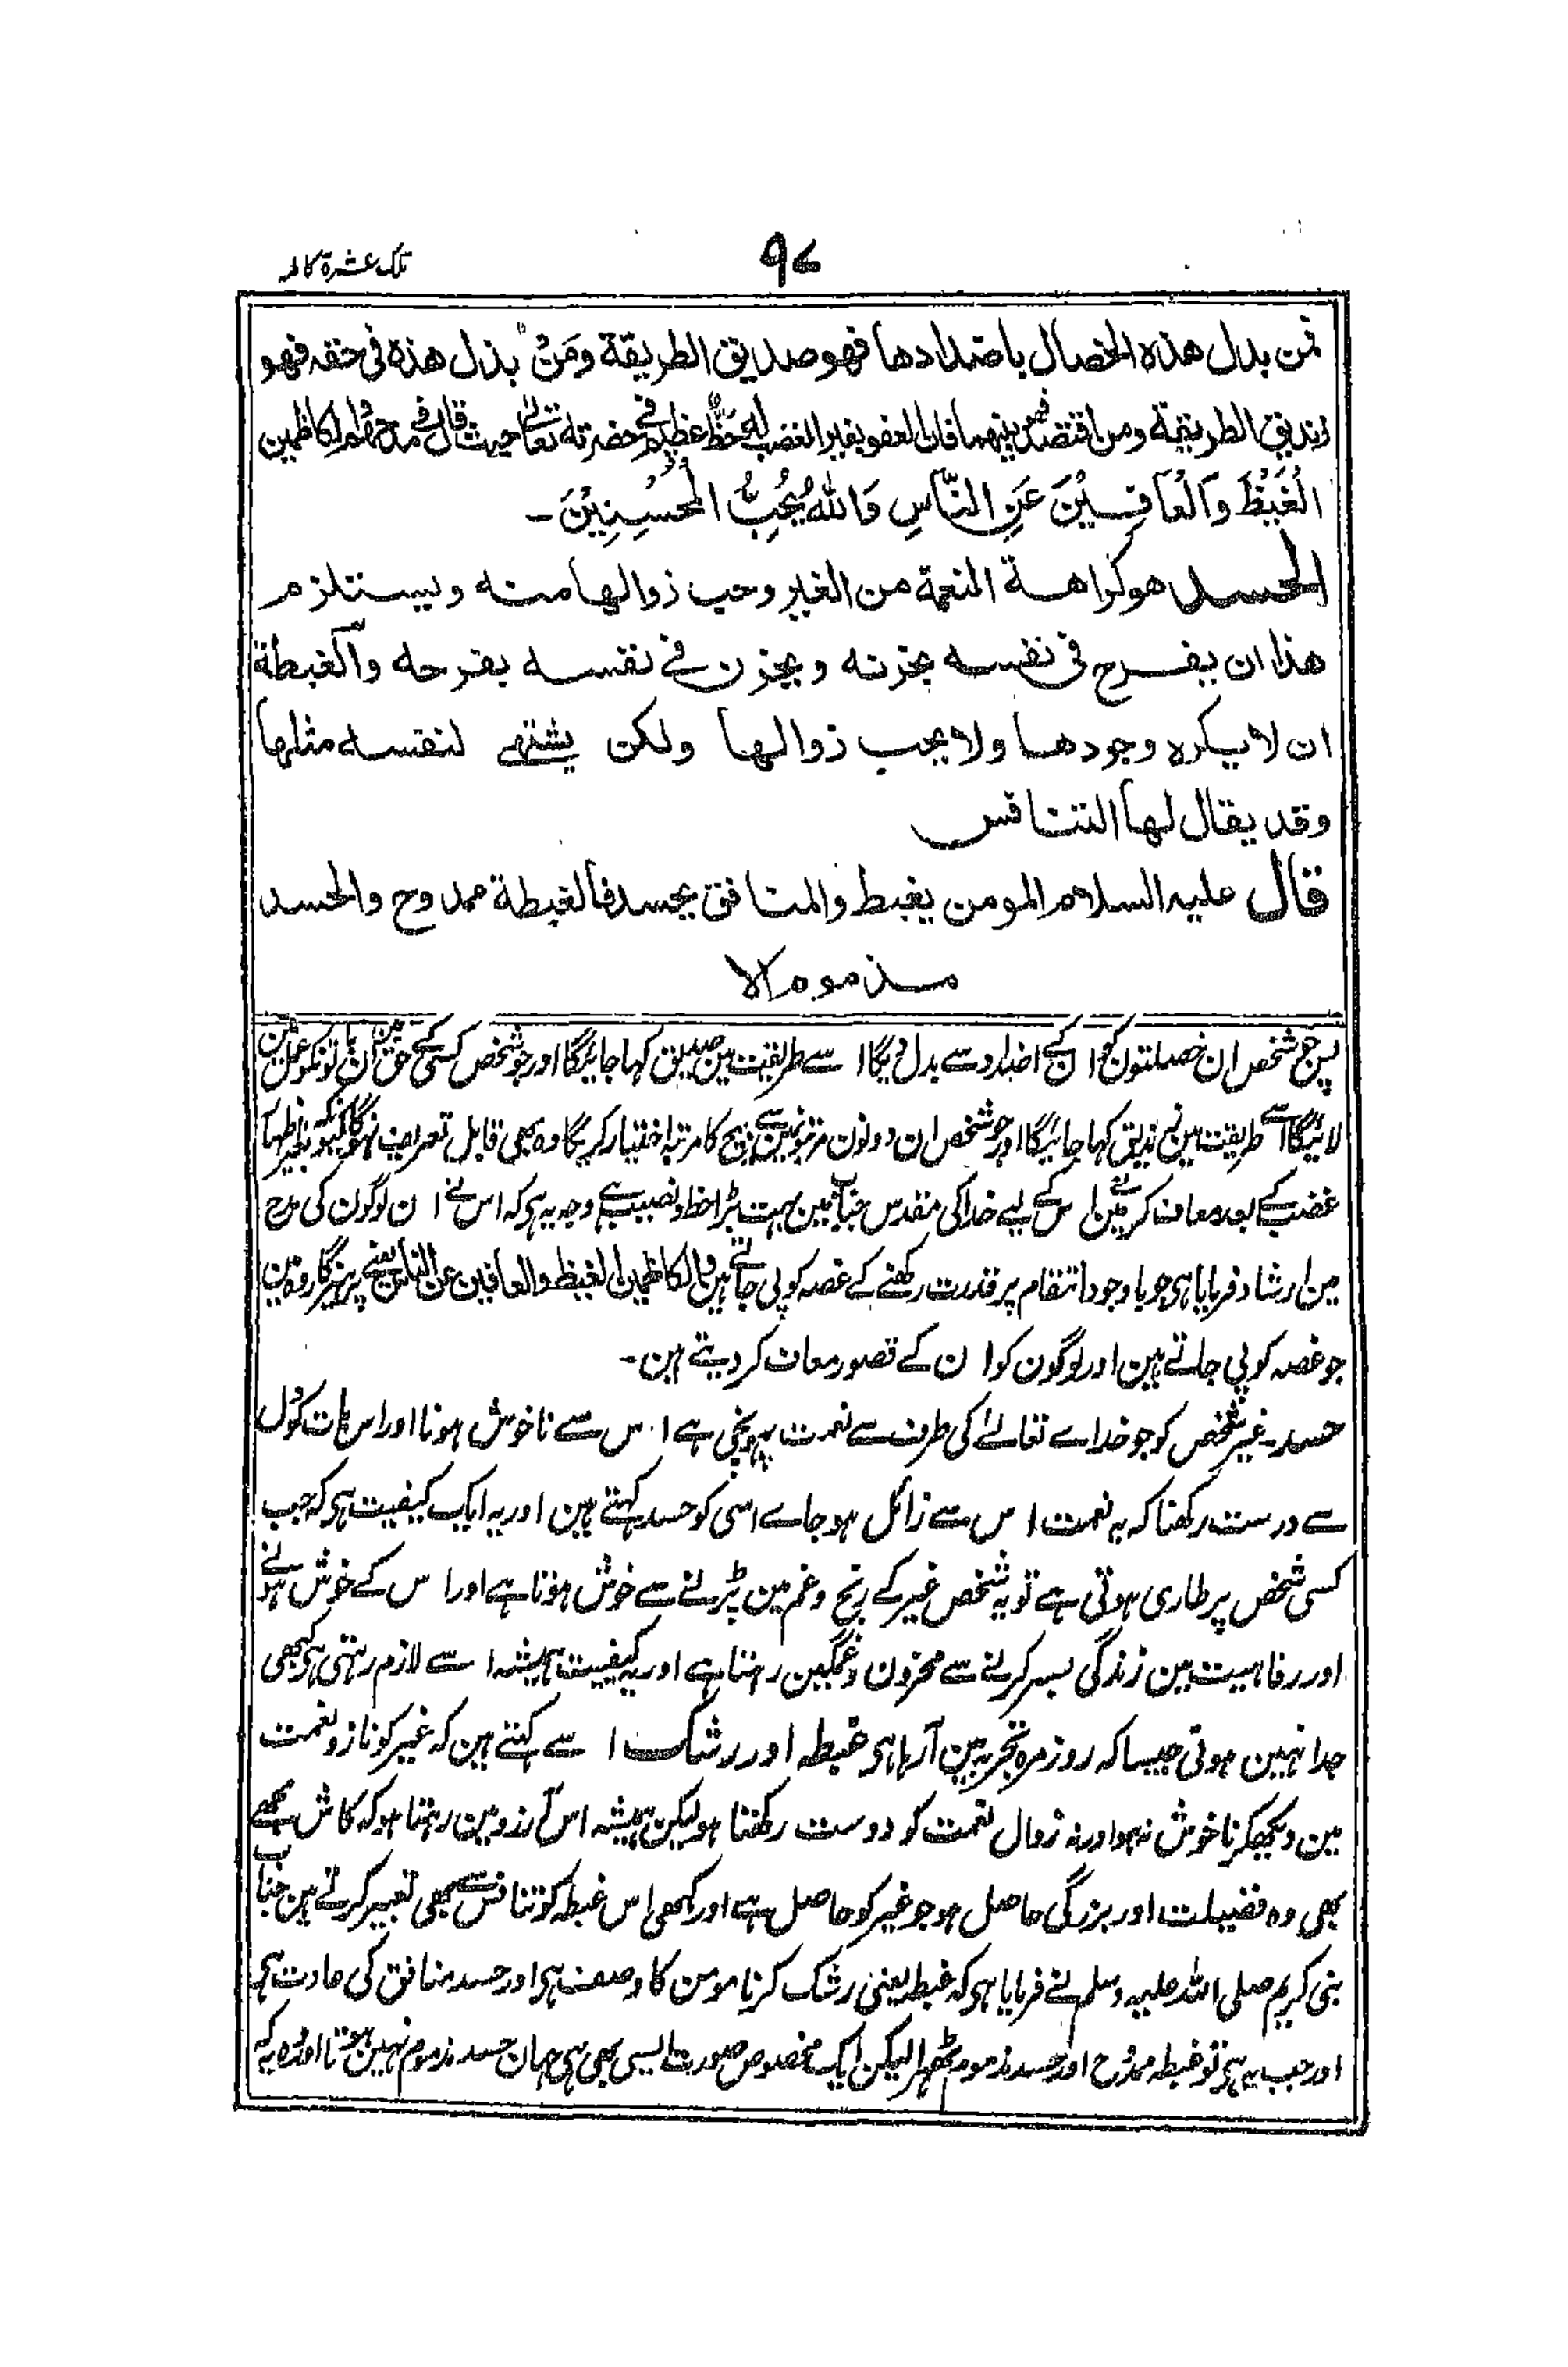 تلك عشرة كاملہ
۹۷
فمن بدل هذه الخصال باضدادها فهو صديق الطريقة ومَنْ بذل هذه فى حقه فهو
زنديق الطريقة ومن اقتصد فهو بينهما فان العفو بغير الغضب له حَظٌّ عظيم فى حضرته تعالىٰ حيث قال فى مدحهم والكاظمين
الْغَيْظَ وَالْعَافِيْنَ عَنِ النَّاسِ وَاللهُ يُحِبُّ الْمُحْسِنِيْنَ ـ
الحسد هو كراهة النعمة من الغير وحب زوالها منه ويستلزم
هذا ان يفرح فى نفسه بحزنه ويحزن فى نفسه بفرحه والغبطة
ان لا يكره وجودها ولا يحب زوالها ولكن يشتهى لنفسه مثلها
وقد يقال لها التنافس
قال عليه السلام المومن يغبط والمنافق يحسد فالغبطة ممدوح والحسد
مذموم الا
پس جو شخص ان خصلتون کو ان کے اضداد سے بدل دیگا اسے طریقت مین صدیق کہا جائیگا اور جو شخص کسی کے حق مین ان باتونکو عمل مین
لائیگا اسے طریقت مین زندیق کہا جائیگا اور جو شخص ان دونون مرتبونمین سے بیچ کا مرتبہ اختیار کریگا وہ بھی قابل تعریف نہوگا کیونکہ بغیر اظہار
غضب کے بعد معاف کرنے مین اس کے لیے خدا کی مقدس جناب مین بہت بڑا حظ و نصیب ہے وجہ یہ ہی کہ اس نے ان لوگون کی مدح
مین ارشاد فرمایا ہی جو باوجود انتقام پر قدرت رکھنے کے غصہ کو پی جاتے ہین والکاظمین الغیظ والعافین عن الناس یعنے پرہیزگار وہ ہین
جو غصہ کو پی جاتے ہین اور لوگون کو ان کے قصور معاف کر دیتے ہین ۔
حسد ۔ غیر شخص کو جو خداے تعالےٰ کی طرف سے نعمت پہونچی ہے اس سے ناخوش ہونا اور اس بات کو دل
سے درست رکھنا کہ یہ نعمت اس سے زائل ہو جاے اسی کو حسد کہتے ہین اور یہ ایک کیفیت ہی کہ جب
کسی شخص پر طاری ہوتی ہے تو یہ شخص غیر کے رنج و غم مین پڑنے سے خوش ہوتا ہے اور اس کے خوش ہونے
اور رفاہیت مین زندگی بسر کرنے سے محزون و غمگین رہتا ہے اور یہ کیفیت ہمیشہ اسے لازم رہتی ہی کبھی
جدا نہین ہوتی جیسا کہ روزمرہ تجربہ مین آرہا ہی غبطہ اور رشک اسے کہتے ہین کہ غیر کو ناز و نعمت
مین دیکھکر ناخوش نہو اور نہ زوال نعمت کو دوست رکھتا ہو لیکن ہمیشہ اس آرزو مین رہتا ہو کہ کاش مجھے
بھی وہ فضیلت اور بزرگی حاصل ہو جو غیر کو حاصل ہے اور کبھی اس غبطہ کو تنافس سے بھی تعبیر کرتے ہین جناب
نبی کریم صلی اللہ علیہ وسلم نے فرمایا ہی کہ غبطہ یعنی رشک کرنا مومن کا وصف ہی اور حسد منافق کی عادت ہی
اور جب یہ ہی تو غبطہ ممدوح اور حسد مذموم ٹھہرا لیکن ایک مخصوص صورت ایسی بھی ہی جہان حسد مذموم نہین ہوتا اور وہ یہ کہ